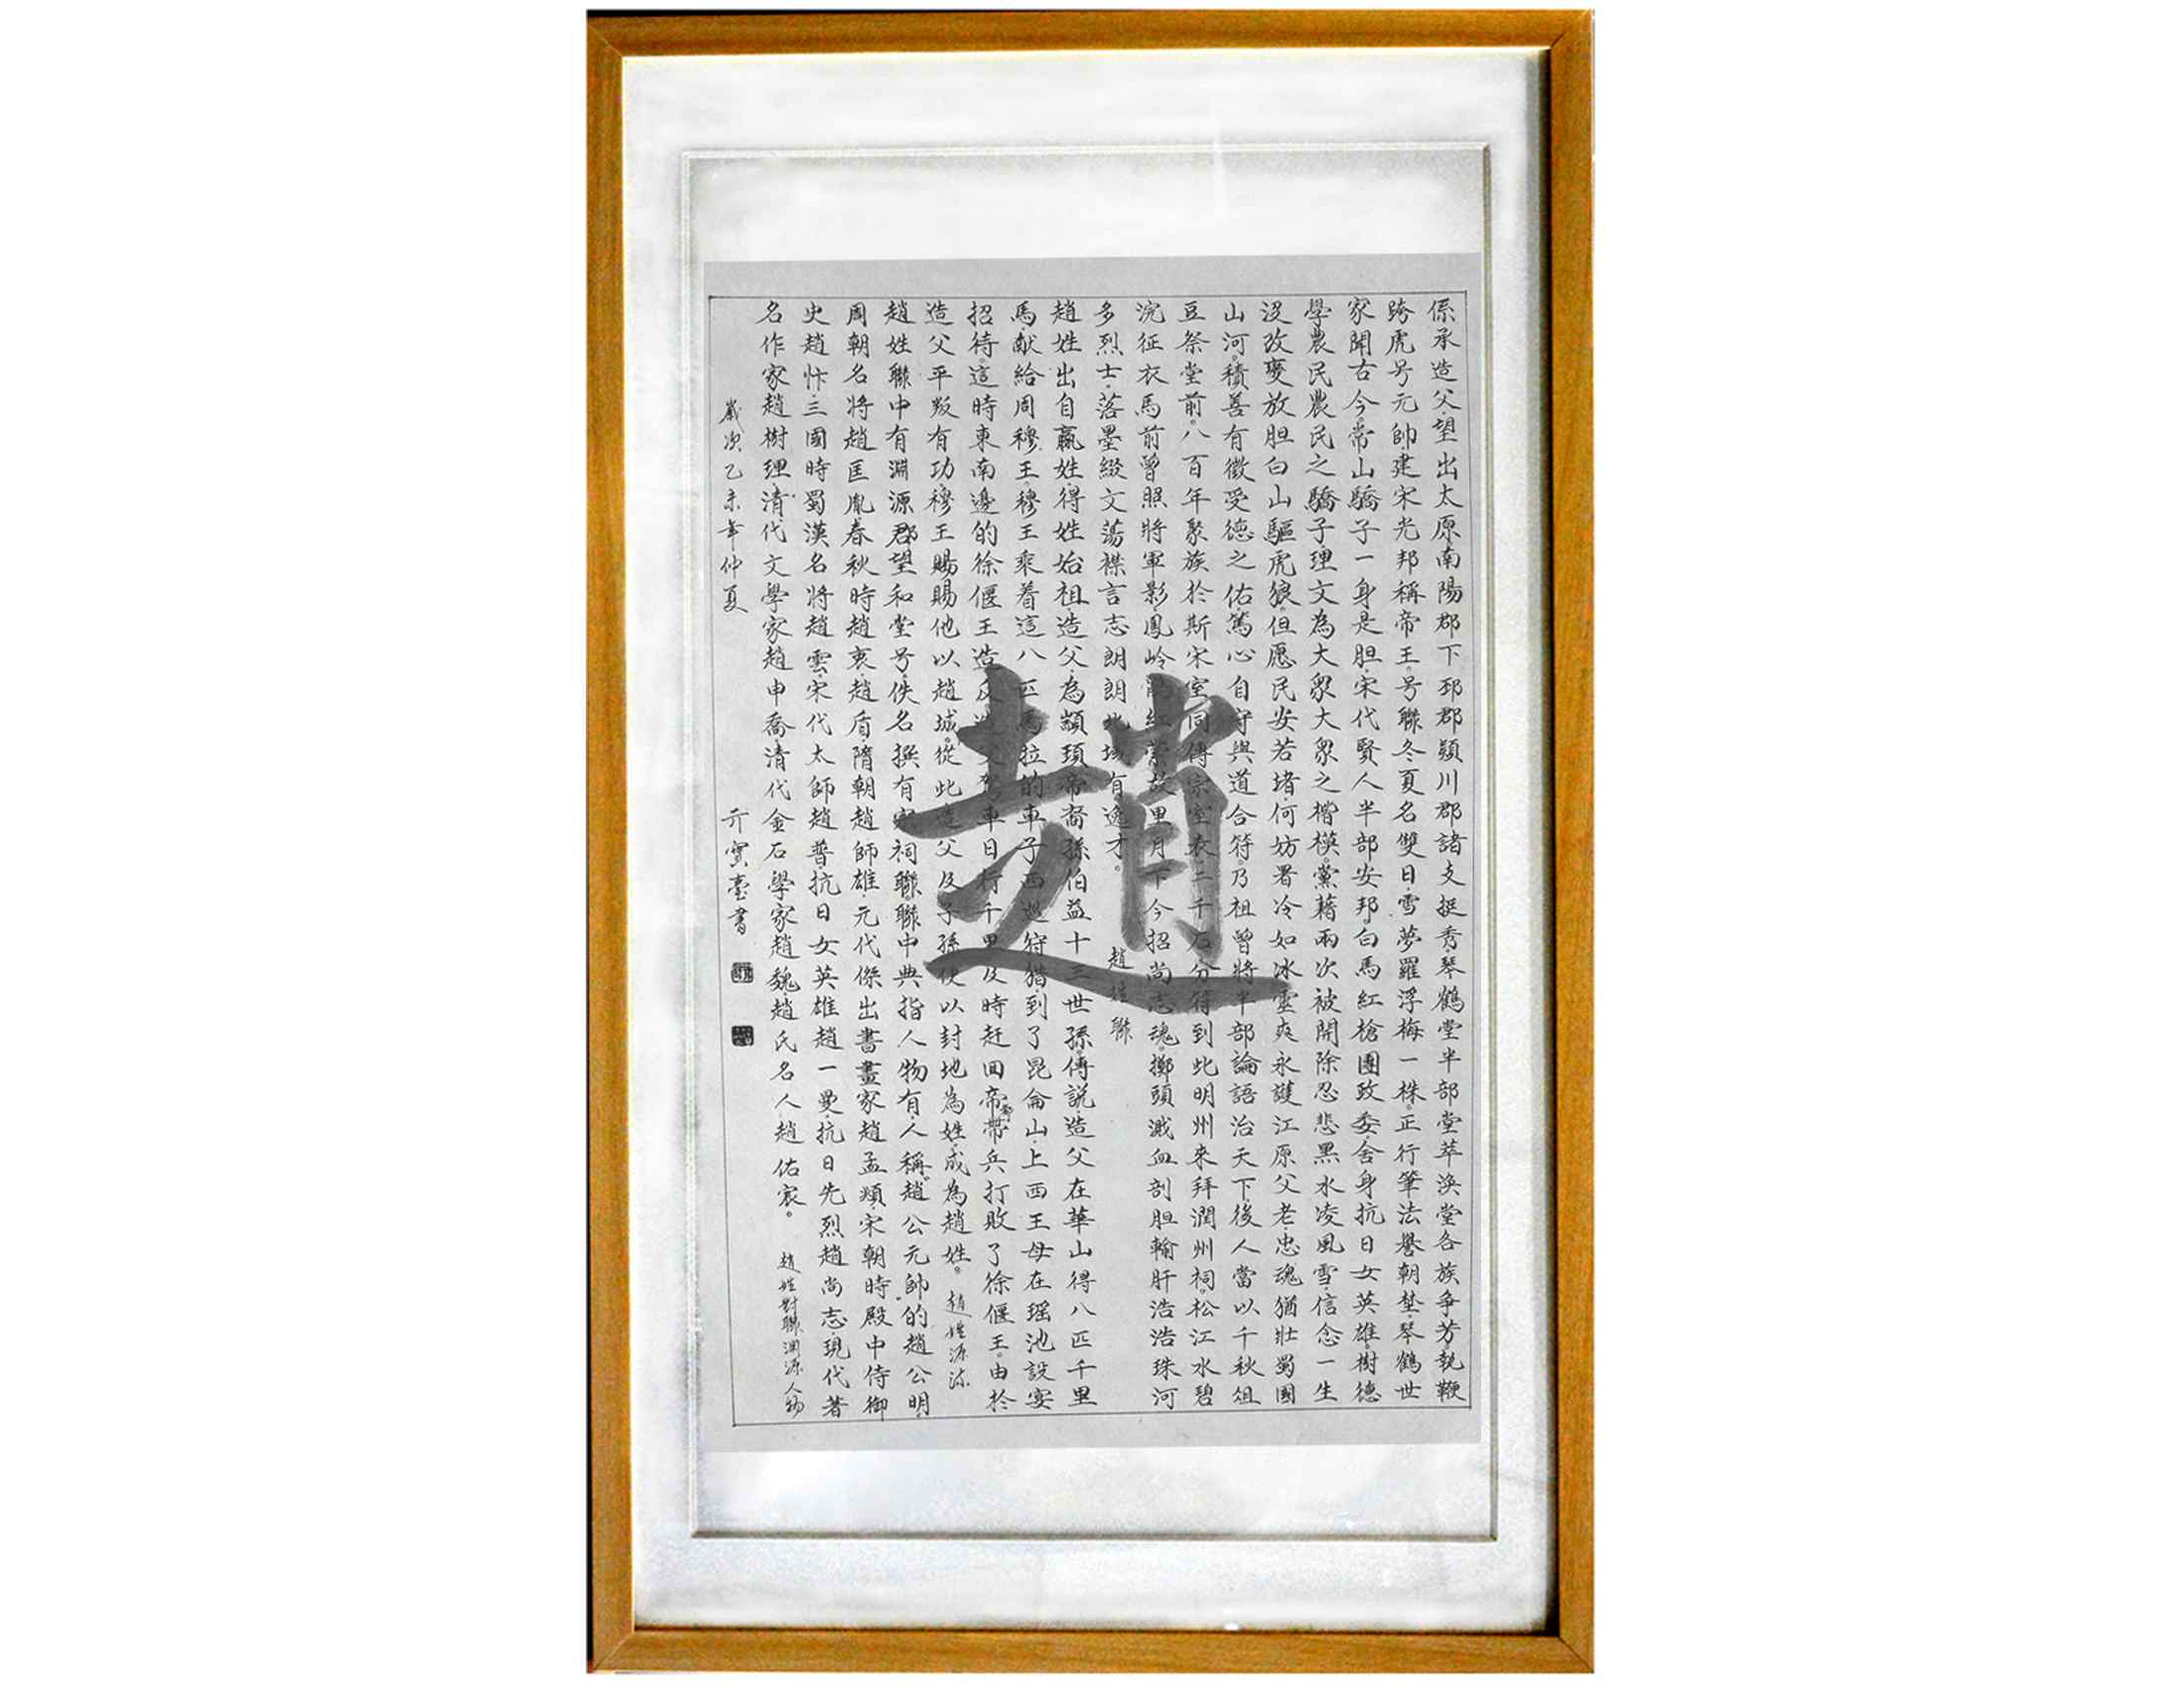 係承造父望出太原南陽郡下邳郡潁川郡諸支挺秀琴鶴堂半部堂萃渙堂各族爭芳執鞭
跨虎号元帥建宋光邦稱帝王号聯冬夏名雙日雪夢羅浮梅一株正行筆法譽朝埜琴鶴世
家聞古今常山驕子一身是胆宋代賢人半部安邦白馬紅槍團政委舍身抗日女英雄樹德
學農民農民之驕子理文為大眾大眾之楷模黨藉兩次被開除忍悲黑水凌風雪信念一生
沒改變放胆白山驅虎狼但愿民安若堵何妨署冷如冰靈爽永護江原父老忠魂猶壯蜀國
山河積善有徵受德之佑篤心自守與道合符乃祖曾將半部論語治天下後人當以千秋俎
豆祭堂前八百年聚族於斯宋室同傳宗室衣二千石分符到此明州來拜潤州祠松江水碧
浣征衣馬前曾照將軍影鳳岭紅故里月下今招尚志魂擲頭濺血剖胆輸肝浩浩珠河
多烈士落墨綴文蕩襟言志朗朗此域有逸才。 趙姓聯
趙姓出自嬴姓得姓始祖造父為顓頊帝裔孫伯益十三世孫傳説造父在華山得八匹千里
馬献給周穆王穆王乘着這八匹馬拉的車子西巡狩猎到了昆侖山上西王母在瑶池設宴
招待這時東南邊的徐偃王造反造父駕車日行千里及時赶回帝帶兵打敗了徐偃王由於
造父平叛有功穆王賜賜他以趙城從此造父及子孫便以封地為姓成為趙姓。 趙姓源流
趙姓聯中有淵源郡望和堂号佚名撰有宗祠聯聯中典指人物有人稱趙公元帥的趙公明
周朝名將趙匡胤春秋時趙衷趙盾隋朝趙師雄元代傑出書畫家趙孟頫宋朝時殿中侍御
史趙忭三國時蜀漢名將趙雲宋代太師趙普抗日女英雄趙一曼抗日先烈趙尚志現代著
名作家趙樹理清代文學家趙申喬清代金石學家趙魏趙氏名人趙佑宸。 趙姓對聯淵源人物
歲次乙未年仲夏 亓寶臺書
趙